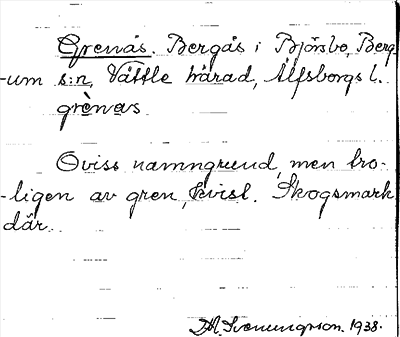 Grenås. Bergås i Björsbo, Berg-
-um s:n, Vättle härad, Älfsborgs l.
grènas
Oviss namngrund, men tro-
-ligen av gren, kvist. Skogsmark
där.
Svenungsson. 1938.